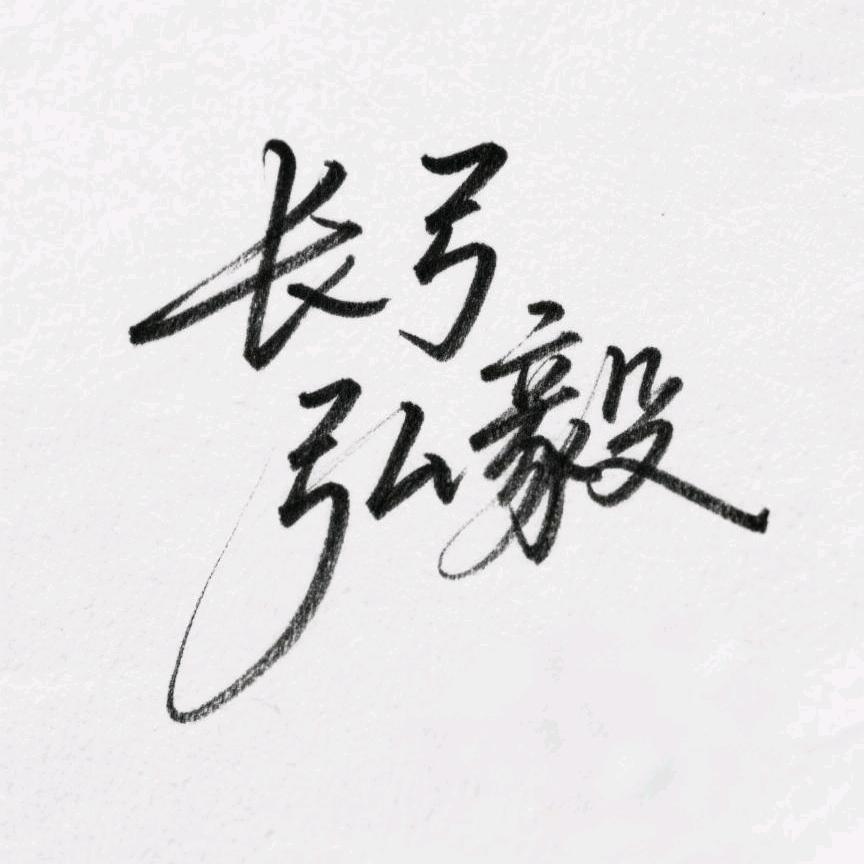 长弓
弘毅